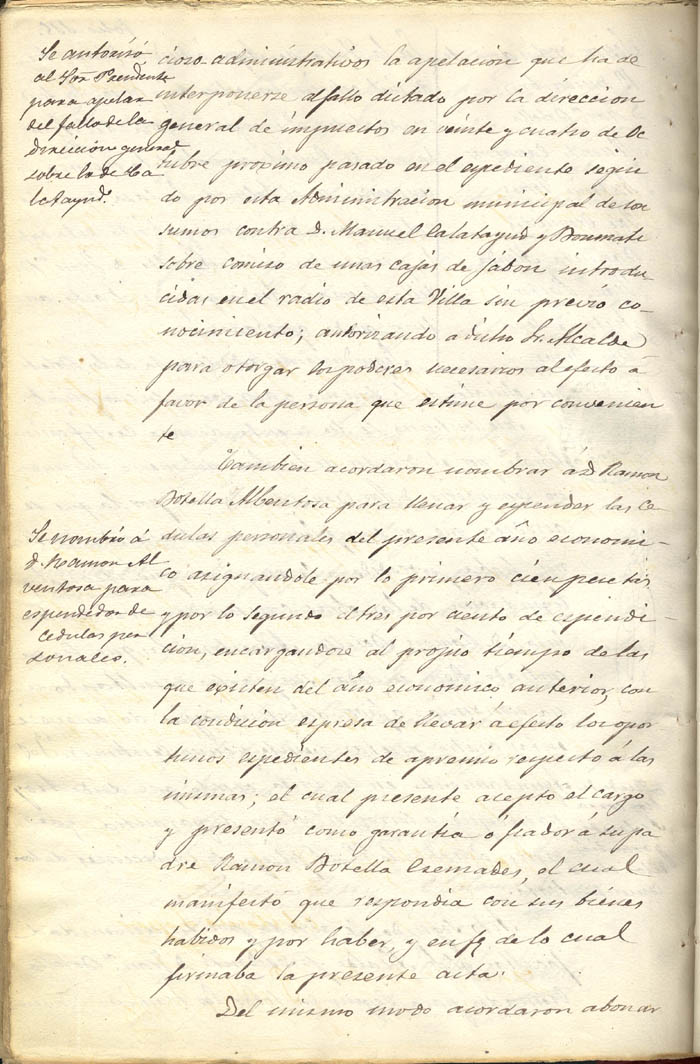 Se autorizó
al Sor Presidente
para apelar
del fallo de la
dirección general
sobre lo de Ca
latayud.
cioso-administrativos la apelacion que ha de
interponerse al fallo dictado por la direccion
general de impuestos en veinte y cuatro de Oc
tubre proximo pasado en el espediente segui
do por esta Administracion municipal de con
sumos contra D. Manuel Calatayud y Bonmati
sobre comiso de unas cajas de jabon introdu
cidas en el radio de esta Villa sin previo co-
nocimiento; autorizando a dicho Sr. Alcalde
para otorgar los poderes necesarios al efecto á
favor de la persona que estime por convenien
te
Tambien acordaron nombrar á D. Ramon
Botella Albentosa para llenar y espender las Ce
dulas personales del presente año economi-
co asignandole por lo primero cien pesetas
y por lo segundo el tres por ciento de espendi-
cion, encargandose al propio tiempo de las
que existen del año economico anterior, con
la condicion espresa de llevar á efecto los opor
tunos espedientes de apremio respecto á las
mismas; el cual presente acepto el cargo
y presentó como garantia ó fiador á su pa
dre Ramon Botella Esemades, el cual
manifestó que respondia con sus bienes
habidos y por haber, y en fé de lo cual
firmaba la presente acta.
Del mismo modo acordaron abonar
Se nombró á
D. Ramon Al
ventosa para
espendedor de
cedulas per
sonales.